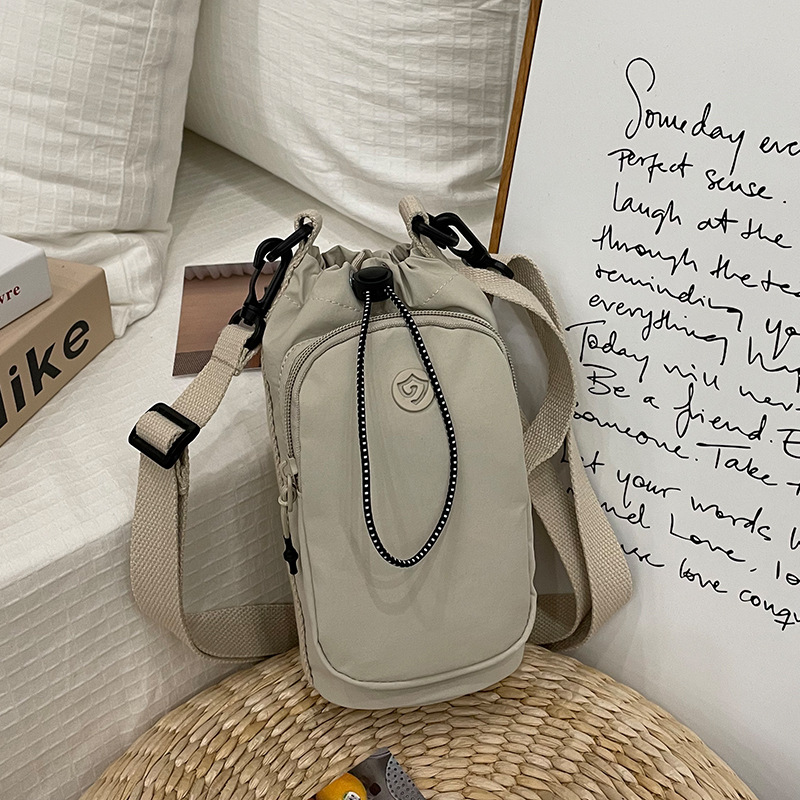 vre
like
Someday eve
Perfect sense.
laugh at the
through the tea
reminding yo
everything hap
Today will neve
Be a friend. E
Someone. Take t
let your words
and Love, lo
love conqu